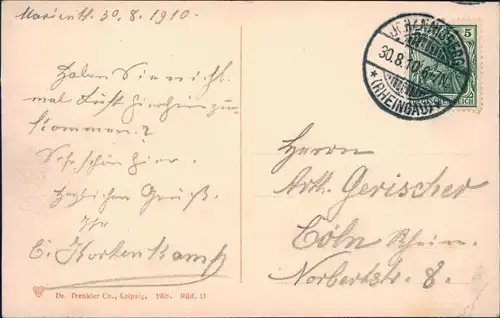 Marienth. 30.8.1910.
Haben Sie nicht
mal Lust hierhin zu
kommen?
Sehr schön hier.
Herzlichen Gruß.
Ihr
C. Kortenkamp
Dr. Trenkler Co., Leipzig, 1905. Rüd. 11
JOHANNISBERG
30.8.10. 6-7N.
*(RHEINGAU)
5
Herrn
Arth. Gerischer
Cöln Rhein.
Norbertstr. 8.